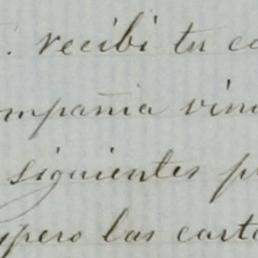 . recibi tu ca
ompañia vin
siguientes p
pero las carta